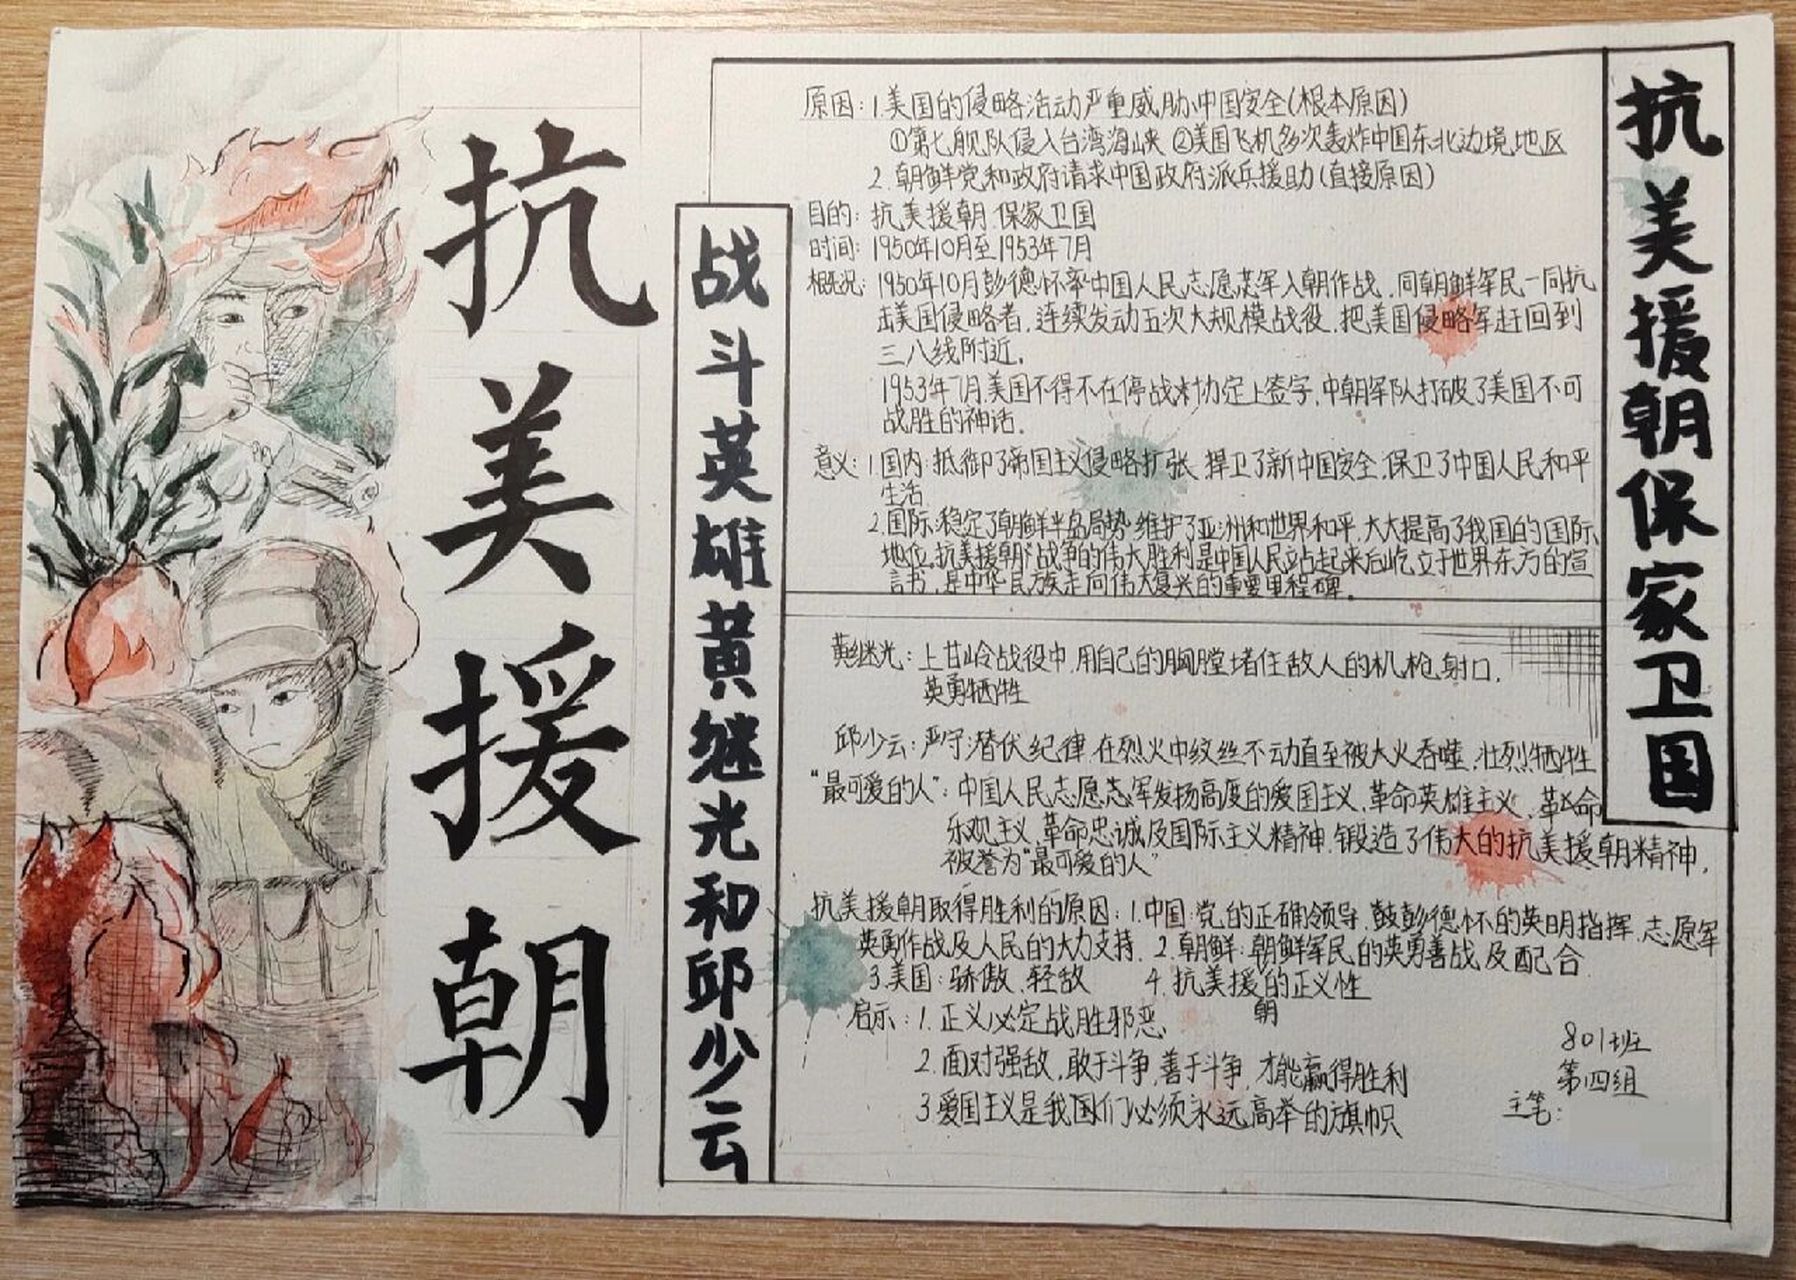 抗美援朝
战斗英雄黄继光和邱少云
抗美援朝保家卫国
原因：1.美国的侵略活动严重威胁中国安全(根本原因)
①第七舰队侵入台湾海峡 ②美国飞机多次轰炸中国东北边境地区
2.朝鲜党和政府请求中国政府派兵援助(直接原因)
目的：抗美援朝 保家卫国
时间：1950年10月至1953年7月
概况：1950年10月彭德怀率中国人民志愿军入朝作战，同朝鲜军民一同抗
击美国侵略者，连续发动五次大规模战役，把美国侵略军赶回到
三八线附近。
1953年7月，美国不得不在停战协定上签字，中朝军队打破了美国不可
战胜的神话。
意义：1.国内：抵御了帝国主义侵略扩张，捍卫了新中国安全，保卫了中国人民和平
生活
2.国际：稳定了朝鲜半岛局势，维护了亚洲和世界和平，大大提高了我国的国际
地位。抗美援朝战争的伟大胜利是中国人民站起来后屹立于世界东方的宣
言书，是中华民族走向伟大复兴的重要里程碑。
黄继光：上甘岭战役中，用自己的胸膛堵住敌人的机枪射口，
英勇牺牲
邱少云：严守潜伏纪律，在烈火中纹丝不动直至被大火吞噬，壮烈牺牲
“最可爱的人”：中国人民志愿军发扬高度的爱国主义、革命英雄主义、革命
乐观主义、革命忠诚及国际主义精神，锻造了伟大的抗美援朝精神，
被誉为“最可爱的人”
抗美援朝取得胜利的原因：1.中国：党的正确领导，彭德怀的英明指挥，志愿军
英勇作战及人民的大力支持 2.朝鲜：朝鲜军民的英勇善战及配合
3.美国：骄傲、轻敌 4.抗美援朝的正义性
启示：1.正义必定战胜邪恶
2.面对强敌，敢于斗争，善于斗争，才能赢得胜利
3.爱国主义是我们必须永远高举的旗帜
801班
第四组
主笔：